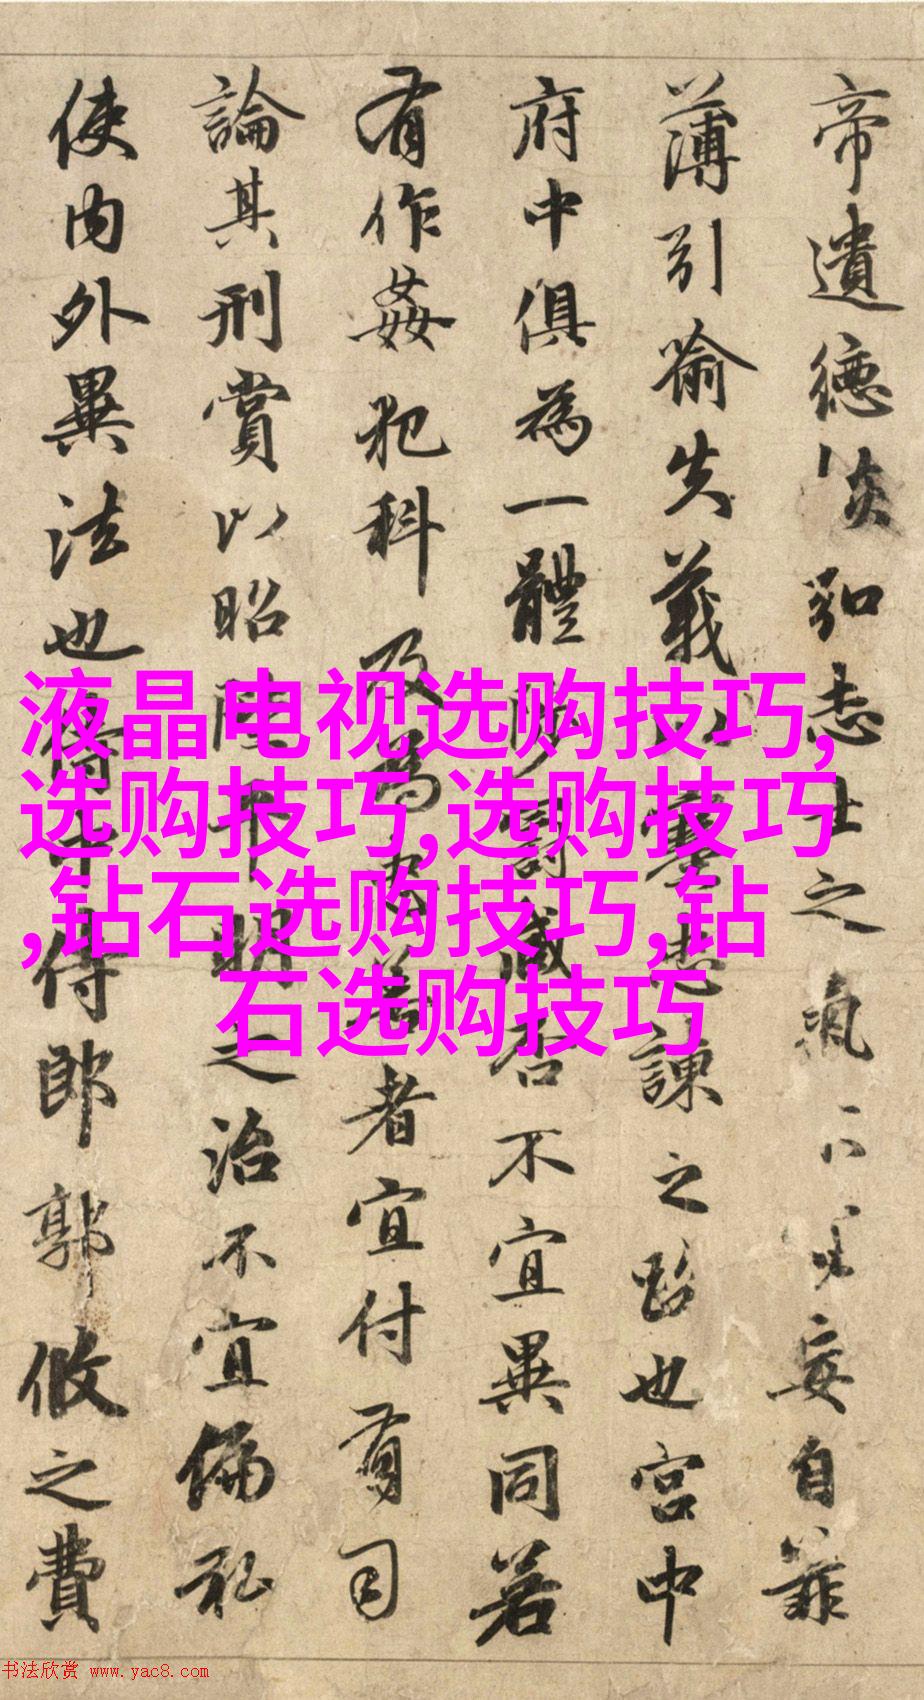 帝遺德恢弘志士之氣不宜妄自菲
薄引喻失義以塞忠諫之路也宮中
府中俱為一體陟罰臧否不宜異同若
有作姦犯科及為忠善者宜付有司
論其刑賞以昭陛平明之治不宜偏私
使內外異法也侍中侍郎郭攸之費
液晶电视选购技巧,
选购技巧,选购技巧
,钻石选购技巧,钻
石选购技巧
书法欣赏 www.yac8.com